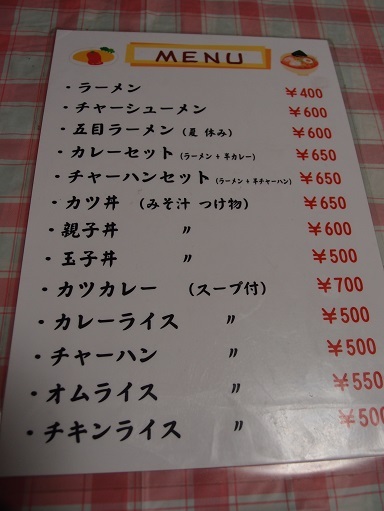 MENU
・ラーメン ¥400
・チャーシューメン ¥600
・五目ラーメン(夏 休み) ¥600
・カレーセット(ラーメン+半カレー) ¥650
・チャーハンセット(ラーメン+半チャーハン) ¥650
・カツ丼 (みそ汁 つけ物) ¥650
・親子丼 〃 ¥600
・玉子丼 〃 ¥500
・カツカレー (スープ付) ¥700
・カレーライス 〃 ¥500
・チャーハン 〃 ¥500
・オムライス 〃 ¥550
・チキンライス 〃 ¥500